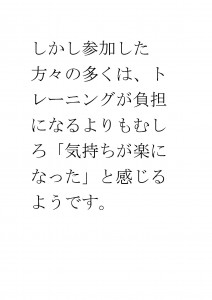 しかし参加した
方々の多くは、ト
レーニングが負担
になるよりもむし
ろ「気持ちが楽に
なった」と感じる
ようです。